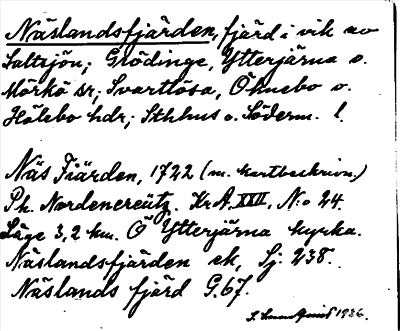 Näslandsfjärden, fjärd i vik av
Saltsjön; Grödinge, Ytterjärna o.
Mörkö sr; Svartlösa, Öknebo o.
Hölebo hdr; Sthlms o. Söderm. l.
Näs Fiärden, 1722 (m. kartbeskrivn.)
Ph. Nordencreütz. KrA. XXII, N:o 24.
Läge 3,2 km. Ö Ytterjärna kyrka.
Näslandsfjärden ek, Sj: 238.
Näslands fjärd G.67.
1936.